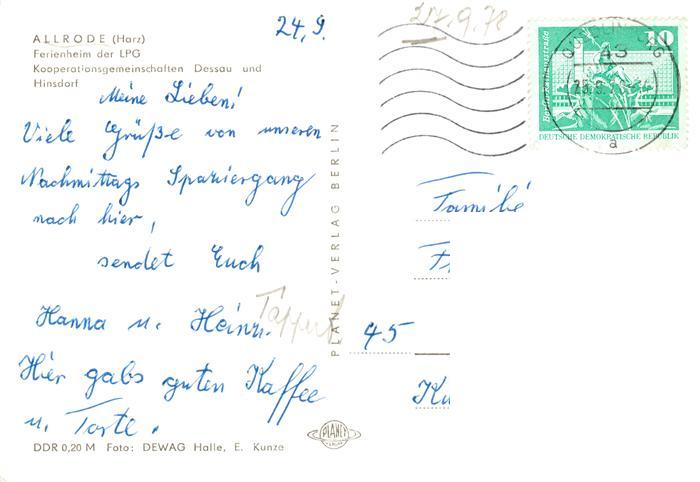 24.9.
24.9.78
ALLRODE (Harz)
Ferienheim der LPG
Kooperationsgemeinschaften Dessau und
Hinsdorf
Meine Lieben!
Viele Grüße von unseren
Nachmittags Spaziergang
nach hier,
sendet Euch
Hanna u. Heinr.
Hier gabs guten Kaffee
u. Torte.
DDR 0,20 M Foto: DEWAG Halle, E. Kunze
PLANET-VERLAG BERLIN
PLANET
10
DEUTSCHE DEMOKRATISCHE REPUBLIK
43
a
Familie
45